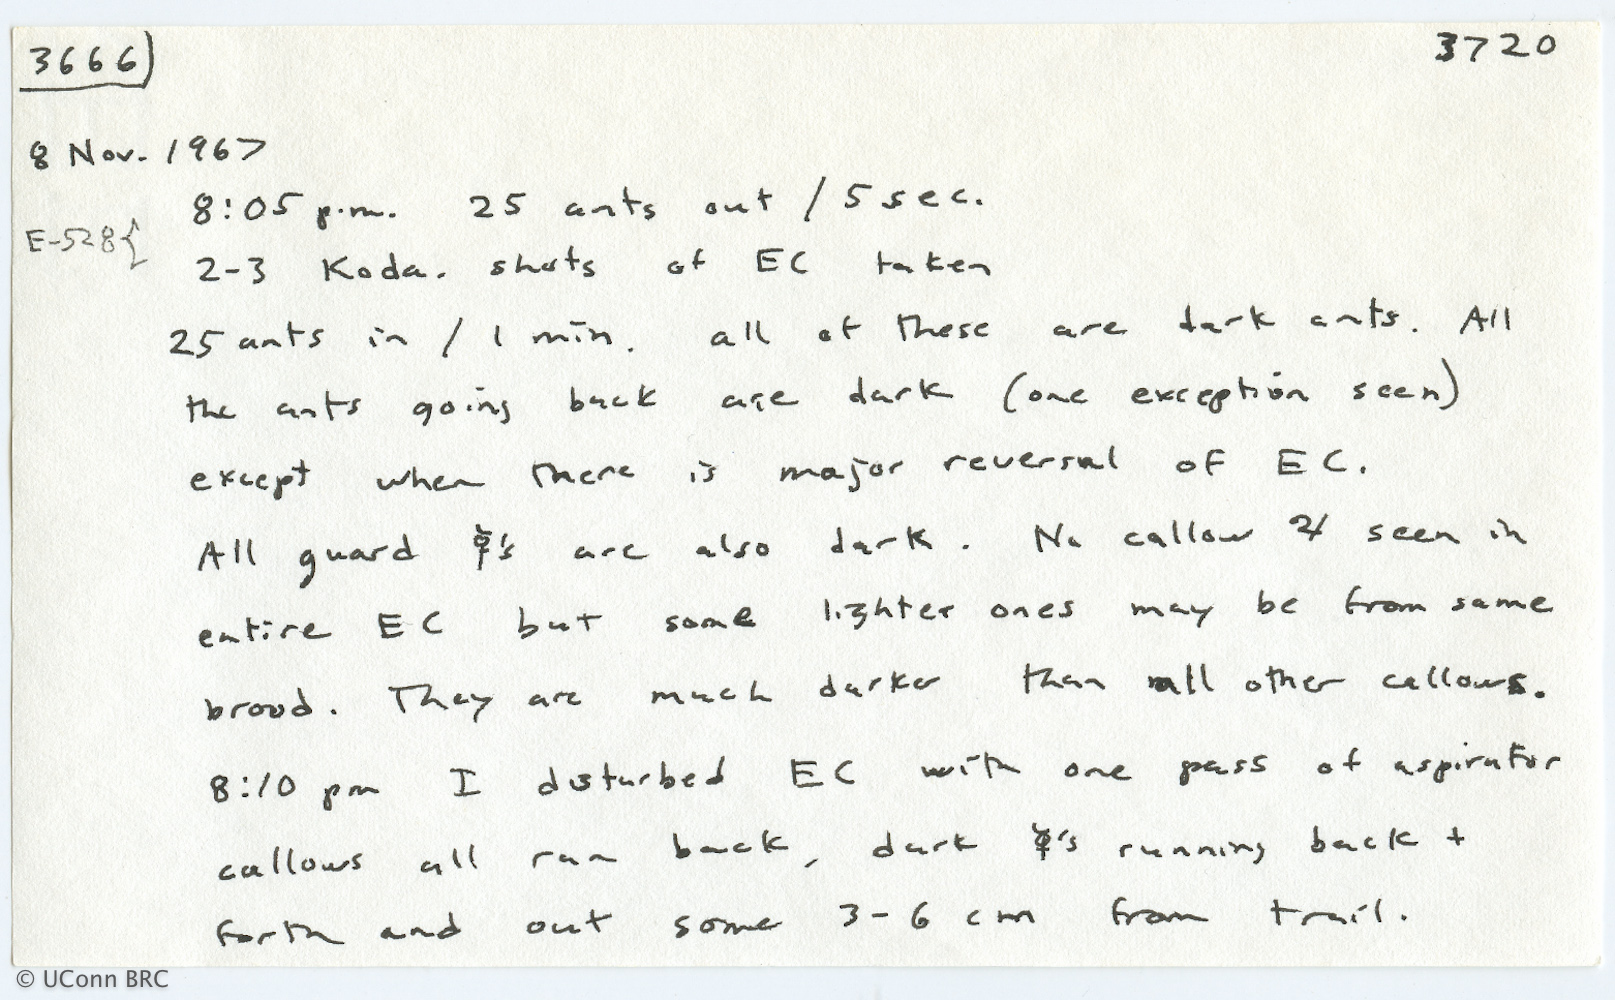 3666 3720
8 Nov. 1967
8:05 p.m. 25 ants out / 5 sec.
E-528{
2-3 Koda. shots of EC taken
25 ants in / 1 min. all of these are dark ants. All
the ants going back are dark (one exception seen)
except when there is major reversal of EC.
All guard ☿'s are also dark. No callow ♃ seen in
entire EC but some lighter ones may be from same
brood. They are much darker than all other callows.
8:10 pm I disturbed EC with one pass of aspirator
callows all ran back, dark ☿'s running back +
forth and out some 3-6 cm from trail.
© UConn BRC